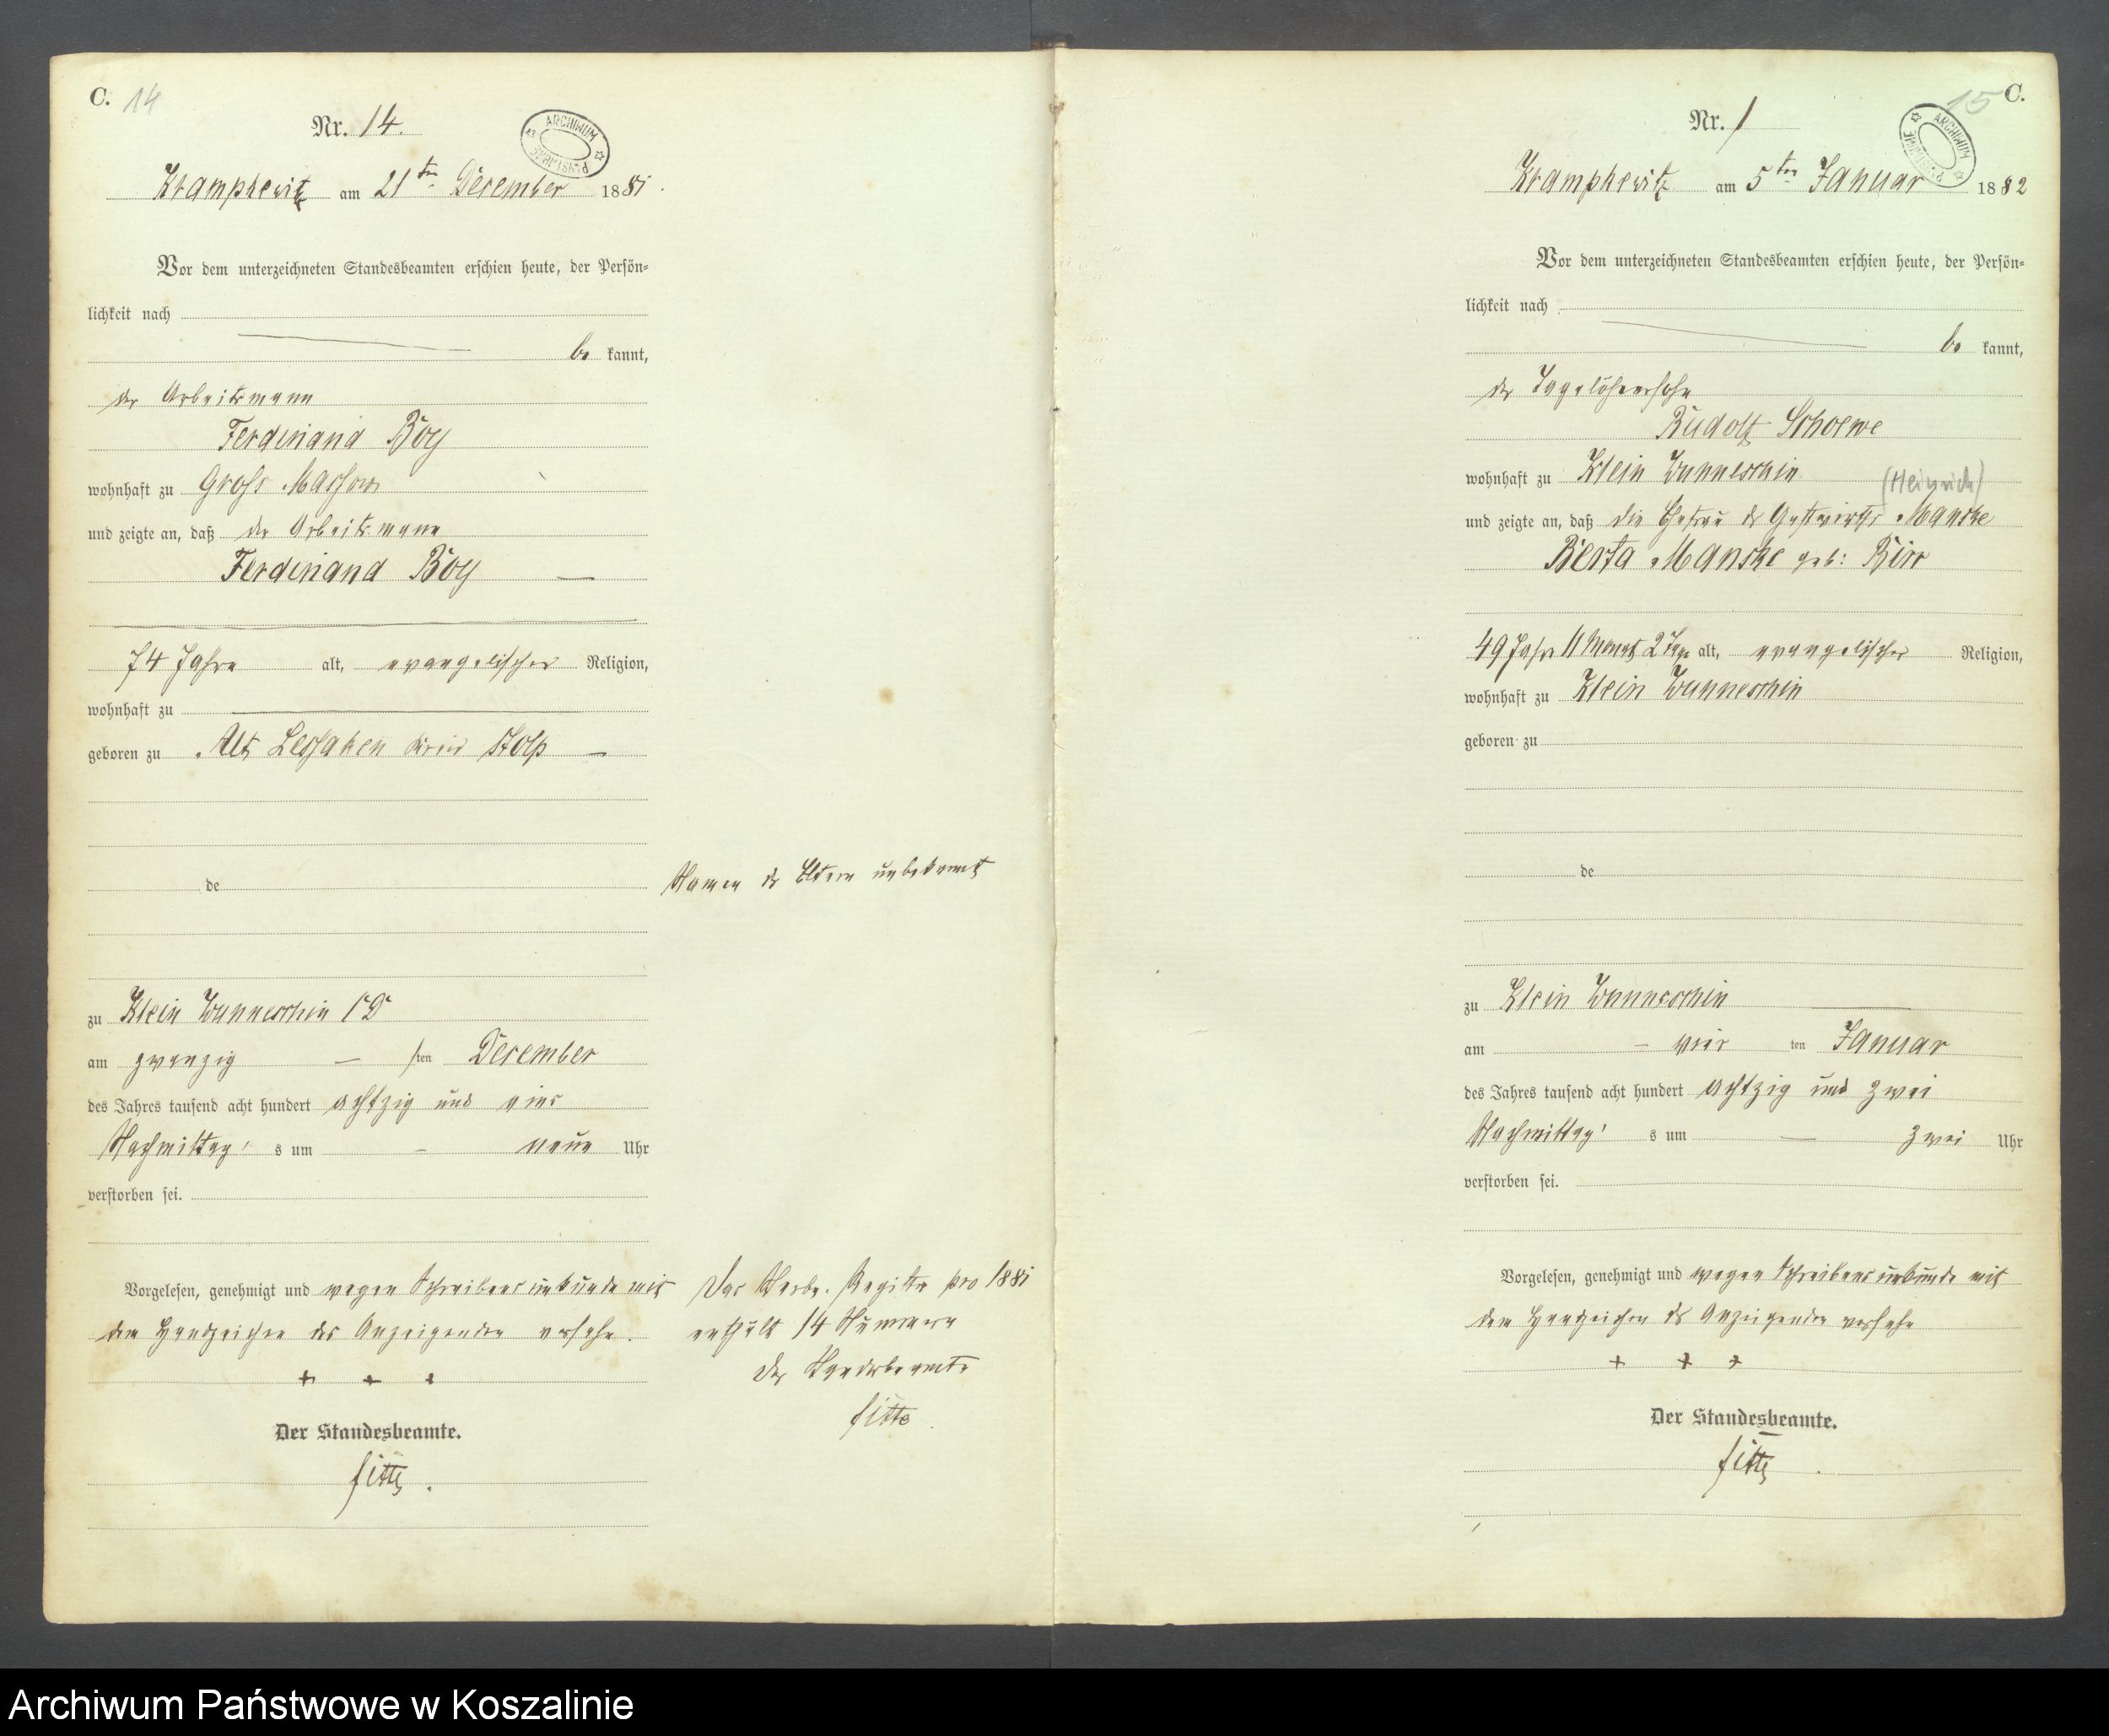 C. 14
Nr. 14.
ARCHIWUM PAŃSTWOWE
Kramphewitz am 21ten December 1881.
Vor dem unterzeichneten Standesbeamten erschien heute, der Persön-
lichkeit nach
be kannt,
der Arbeitsmann
Ferdinand Boy
wohnhaft zu Gross Massow
und zeigte an, daß der Arbeitsmann
Ferdinand Boy
74 Jahre alt, evangelischer Religion,
wohnhaft zu
geboren zu Alt Lessaken Kreis Stolp
de
Namen der Eltern unbekannt
zu Klein Wunneschin
am zwanzig sten December
des Jahres tausend acht hundert achtzig und eins
Nachmittag s um neun Uhr
verstorben sei.
Vorgelesen, genehmigt und wegen Schreibensunkunde mit
dem Handzeichen des Anzeigenden versehn.
+ + +
Der Standesbeamte.
Fitte.
Das Sterbe-Register pro 1881
enthält 14 Nummern
Der Standesbeamte
Fitte.
15 C.
Nr. 1
ARCHIWUM PAŃSTWOWE
Kramphewitz am 5ten Januar 1882
Vor dem unterzeichneten Standesbeamten erschien heute, der Persön-
lichkeit nach
be kannt,
der Tagelöhnersohn
Rudolf Schoewe
wohnhaft zu Klein Wunneschin
(Heinrich)
und zeigte an, daß die Ehefrau des Gastwirths Manske
Berta Manske geb: Birr
49 Jahr 11 Monat 2 Tage alt, evangelischer Religion,
wohnhaft zu Klein Wunneschin
geboren zu
de
zu Klein Wunneschin
am vier ten Januar
des Jahres tausend acht hundert achtzig und zwei
Nachmittag s um zwei Uhr
verstorben sei.
Vorgelesen, genehmigt und wegen Schreibensunkunde mit
dem Handzeichen des Anzeigenden versehn
+ + +
Der Standesbeamte.
Fitte.
Archiwum Państwowe w Koszalinie